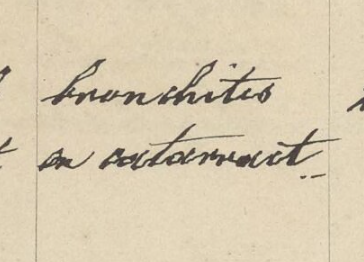 bronchitis
en catarract